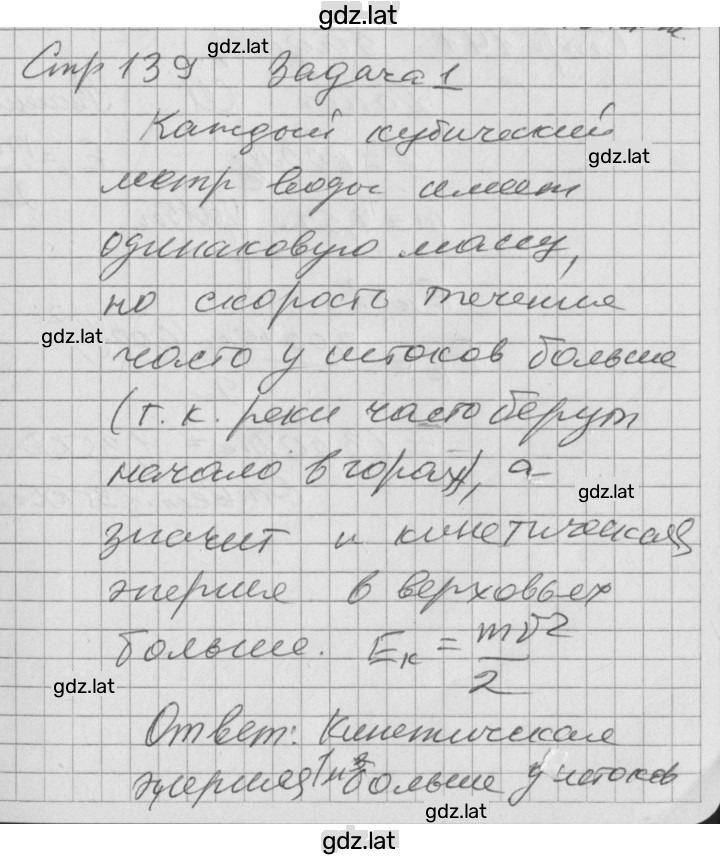 gdz.lat
Стр 139 Задача 1
gdz.lat
Каждый кубический
gdz.lat
метр воды имеет
одинаковую массу,
но скорость течения
gdz.lat
часто у истоков больше
(т. к. реки часто берут
начало в горах), а
gdz.lat
значит и кинетическая
энергия в верховьях
больше. Eк = mv²/2
gdz.lat
Ответ: Кинетическая
энергия 1м³ больше у истоков
gdz.lat
gdz.lat